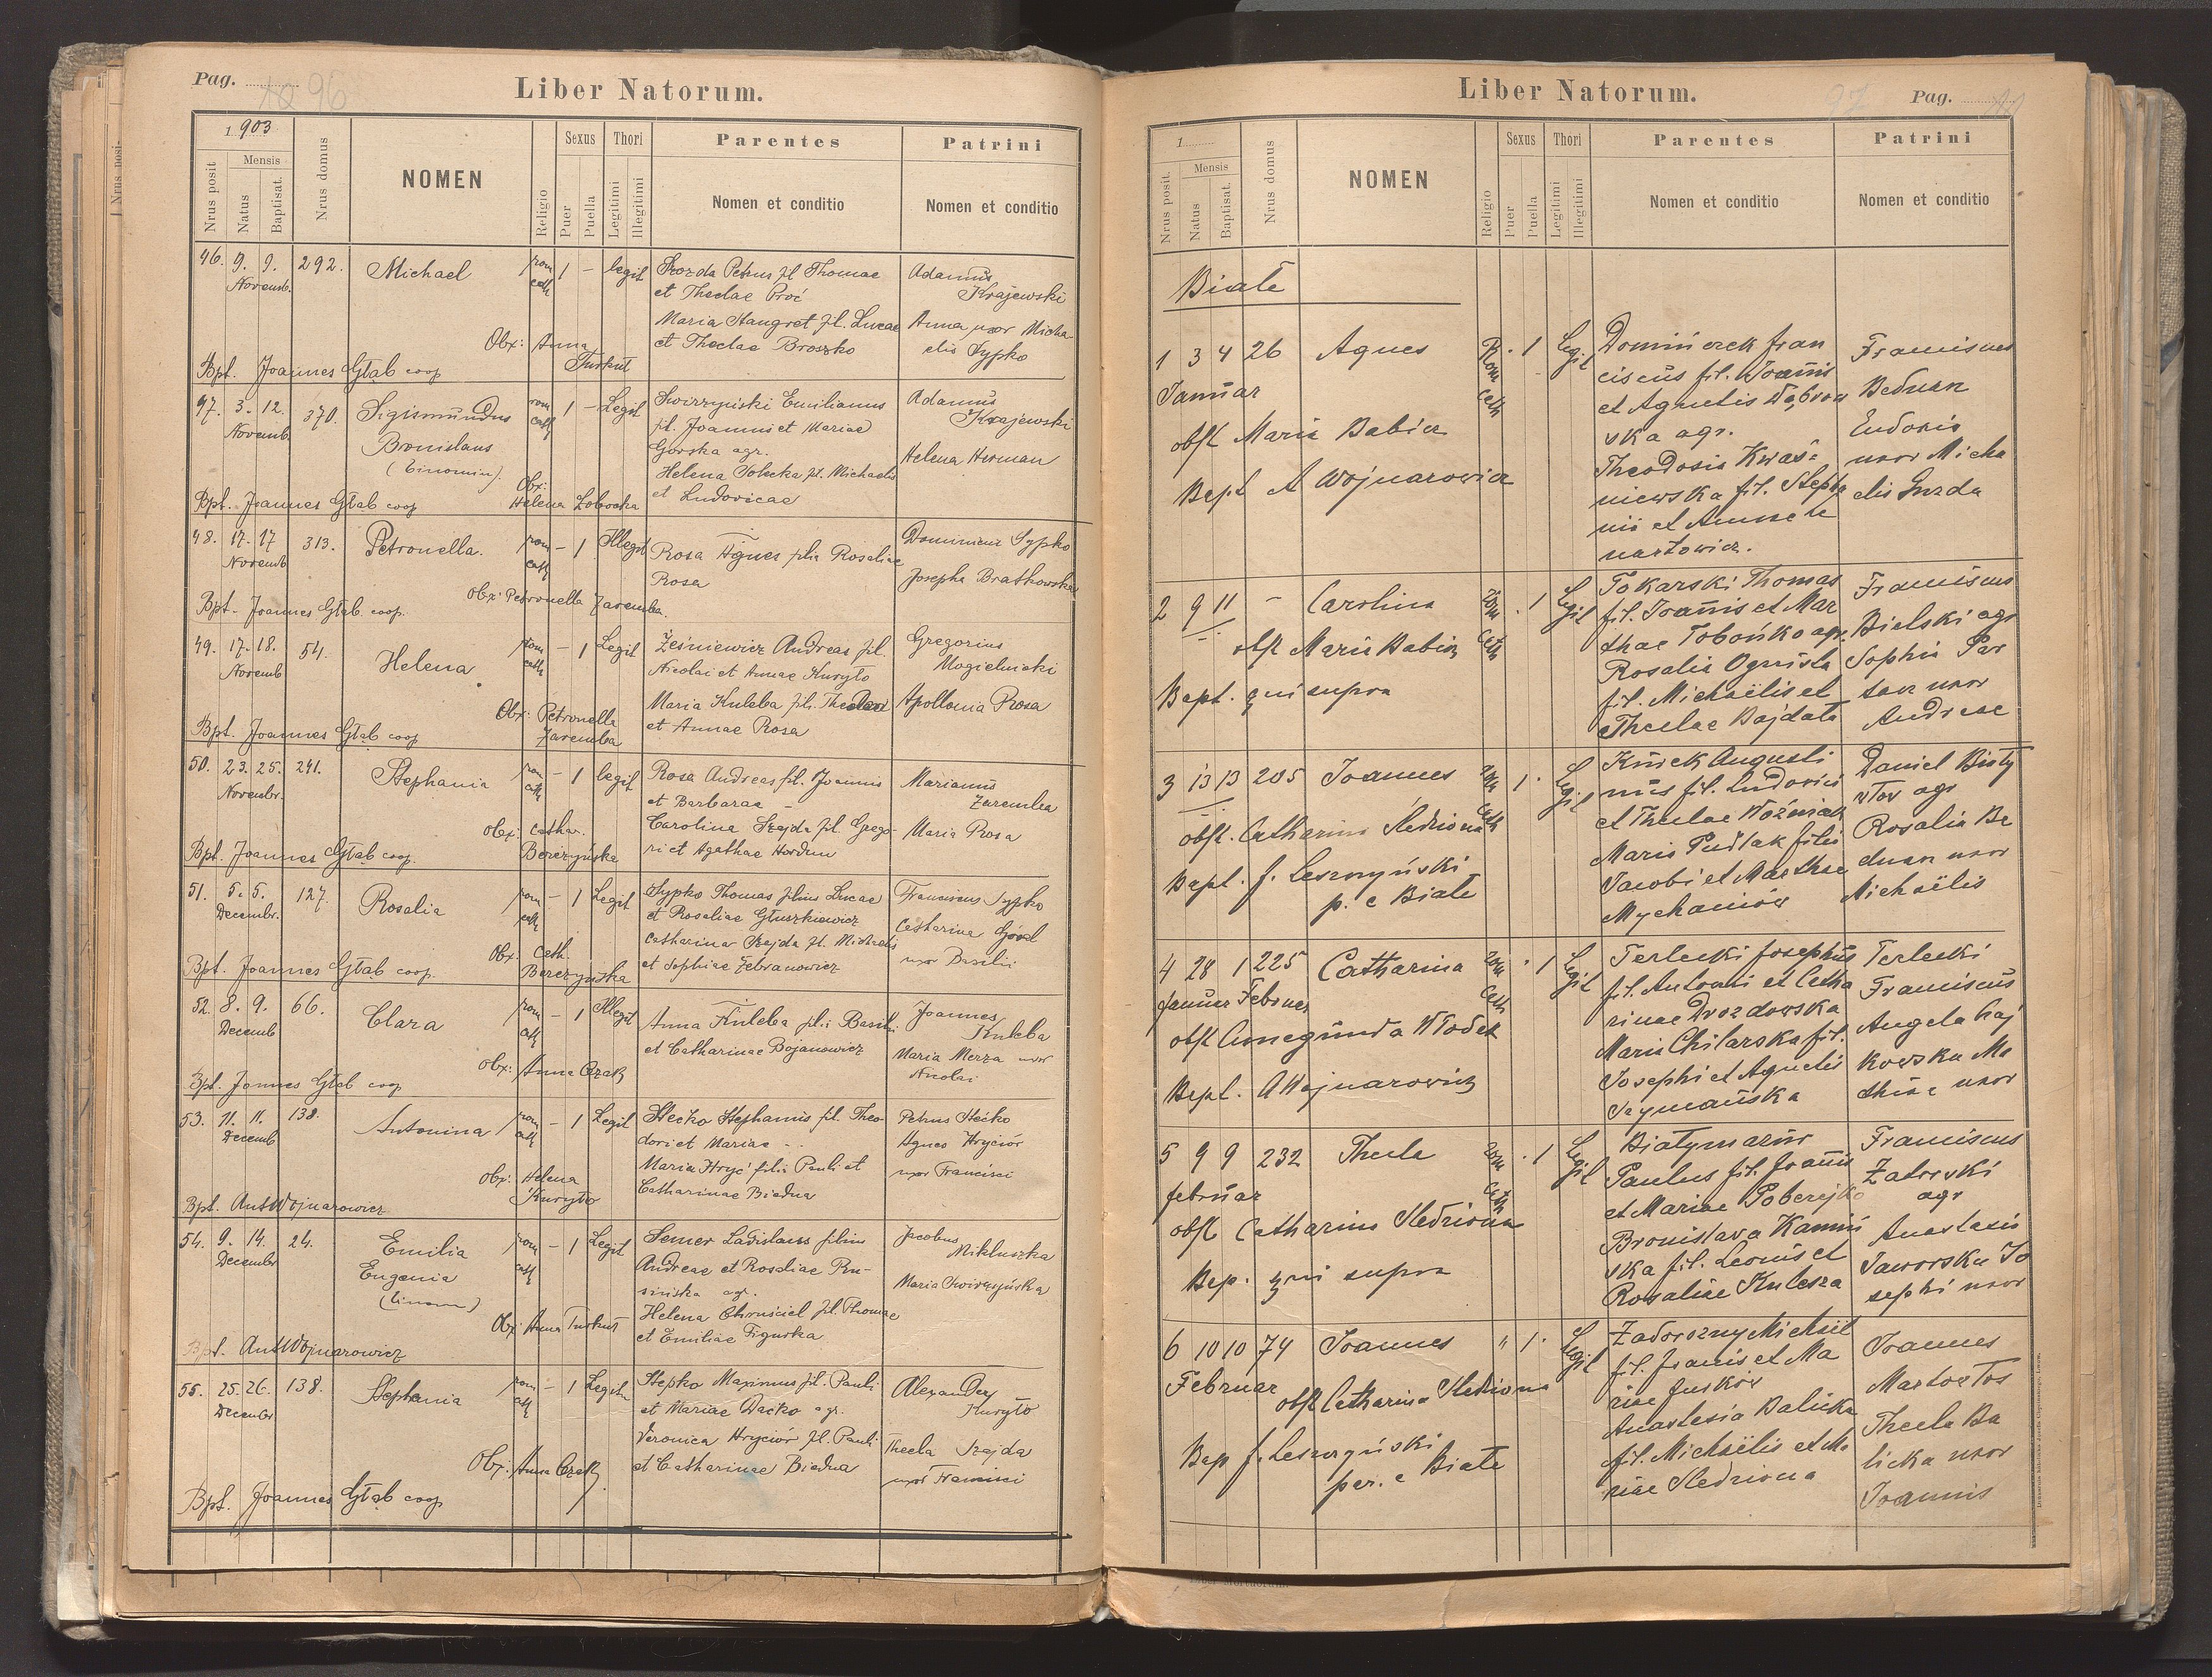 Pag. 96
Liber Natorum.
1903
Nrus posit
Mensis
Natus
Baptisat.
Nrus domus
NOMEN
Religio
Sexus
Puer
Puella
Thori
Legitimi
Illegitimi
Parentes
Nomen et conditio
Patrini
Nomen et conditio
46. 9. 9. 292. Michael rom cath 1 – legit
Novemb.
Petrus fil Thomae
et Theclae Proć
Maria Stangret fil. Lucae
et Theclae Broszko
Adamus
Krajewski
Anna uxor Micha
elis Sypko
Obx: Anna
Turkut
Bpt. Joannes Głąb coop
47. 3. 12. 370. Sigismundus rom cath 1 – Legit
Novemb.
Bronislaus
(binomin).
Swirzyński Emilianus
fil. Joannis et Mariae
Górska agr.
Helena Sobecka fil. Michaelis
et Ludovicae
Adamus
Krajewski
Helena Herman
Obx:
Helena
Bpt. Joannes Głąb coop
48. 17. 17 313. Petronella. rom cath – 1 Illegit
Novemb
Rosa Agnes filia Rosaliae
Rosa
Dominicus Sypko
Josepha Bratkowska
Obx: Petronella Zaremba.
Bpt. Joannes Głąb coop.
49. 17. 18. 54. Helena rom cath – 1 Legit
Novemb
Leśniewicz Andreas fil.
Nicolai et Annae Kuryło
Maria Kuleba fil.
et Annae Rosa
Gregorius
Mogielnicki
Apollonia Rosa
Obx: Petronella
Zaremba
Bpt. Joannes Głąb coop
50. 23. 25. 241. Stephania rom cath – 1 legit
Novembr.
Rosa Andreas fil. Joannis
et Barbarae –
Carolina Szajda fil. Grego-
ri et Agathae Hordun
Marianus
Zaremba
Maria Rosa
Obx: Cathar.
Berezyńska
Bpt. Joannes Głąb coop.
51. 5. 5. 127. Rosalia rom cath – 1 Legit
Decembr.
Sypko Thomas filius Lucae
et Rosaliae Głuszkiewicz
Catharina Szajda fil. Michaelis
et Sophiae Zebranowicz
Franciscus Sypko
Catharina
uxor Basilii
Obx: Cath.
Berezyńska
Bpt. Joannes Głąb coop.
52. 8. 9. 66. Clara rom cath – 1 Illegit
Decemb
Anna Kuleba fil. Basili
et Catharinae Bojanowicz
Joannes
Kuleba
Maria Merza uxor
Nicolai
Obx: Anna Czak
Bpt. Joannes Głąb coop
53. 11. 11. 138. Antonina rom cath – 1 Legit
Decemb
Stećko Stephanus fil. Theo
dori et Mariae - -
Maria Hryć filia Pauli et
Catharinae Biedna
Petrus Stećko
Agnes Hryciów
uxor Francisci
Obx: Helena
Kuryło
Bpt. Ant Wojnarowicz
54. 9. 14. 24. Emilia rom cath – 1 Legit
Decembr
Eugenia
(binom)
Semer Ladislaus filius
Andreae et Rosaliae Ru-
sińska agr.
Helena Chruściel fil. Thomae
et Emiliae Figurka
Jacobus
Mikluszka
Maria Swirzyńska
Obx: Anna Turkut
Bpt. Ant Wojnarowicz
55. 25. 26. 138. Stephania rom cath – 1 Legit
Decembr
Stepko Maximus fil. Pauli
et Mariae Daćko agr.
Veronica Hryciów fil. Pauli
et Catharinae Biedna
Alexander
Kuryło
Thecla Szajda
uxor Francisci
Obx: Anna Czak
Bpt. Joannes Głąb coop
Liber Natorum.
97 Pag.
1
Nrus posit.
Mensis
Natus
Baptisat.
Nrus domus
NOMEN
Religio
Sexus
Puer
Puella
Thori
Legitimi
Illegitimi
Parentes
Nomen et conditio
Patrini
Nomen et conditio
Białe
1 3 4 26 Agnes Rom Cath . 1 Legit
Januar
obst Maria Babicz
Bapt A Wojnarowicz
Dominierek Fran
ciscus fil. Joannis
et Agnetis Dąbrow
ska agr.
Theodosia Kwaś=
niewska fil. Stepha
nii et Annae
Franciscus
Bednarz
Eudoxia
uxor Micha
elis Gurda
2 9 11 – Carolina rom cath . 1 Legit
obst Maria Babicz
Bapt. qui supra
Tokarski Thomas
fil. Joannis et Mar
thae Tobońko agr.
Rosalia Ognista
fil. Michaëlis et
Theclae Bajdała
Franciscus
Bielski agr
Sophia
uxor
Andreae
3 13 13 205 Joannes rom cath 1 . Legit
obst. Catharina Śledziona
Bapt. J. Leszczyński
p. e Białe
Kurek Augusti
nus fil. Ludovici
et Theclae Woźniak
Maria Pudlak filia
Jacobi et Marthae
Mychaniów
Daniel Biały
włos agr
Rosalia Be
dnarz uxor
Michaëlis
4 28 1 225 Catharina rom cath . 1 Legit
Januar Februar
obst Cunegunda Włodek
Bapt. A Wojnarowicz
Terlecki Josephus
fil. Antonii et Catha
rinae Drozdowska
Maria Chilarska fil.
Josephi et Agnetis
Szymańska
Terlecki
Franciscus
Angela Gaj
kowska Ma
thiae uxor
5 9 9 232 Thecla rom cath . 1 Legit
Februar
obst Catharina Śledziona
Bap. qui supra
Białymazur
Paulus fil. Joannis
et Mariae Poberejko
Bronisława Kamiń
ska fil. Leonis et
Rosaliae Kulesza
Franciscus
Zatorski
agr
Anastasia
Jaworska Jo
sephi uxor
6 10 10 74 Joannes " 1 . Legit
Februar
obst Catharina Śledziona
Bap J. Leszczyński
par. e Białe
Zadorozny Michael
fil. Joannis et Ma
riae Juśków
Anastasia Balicka
fil. Michaëlis et Ma
riae Śledziona
Joannes
Thecla Ba
licka uxor
Joannis